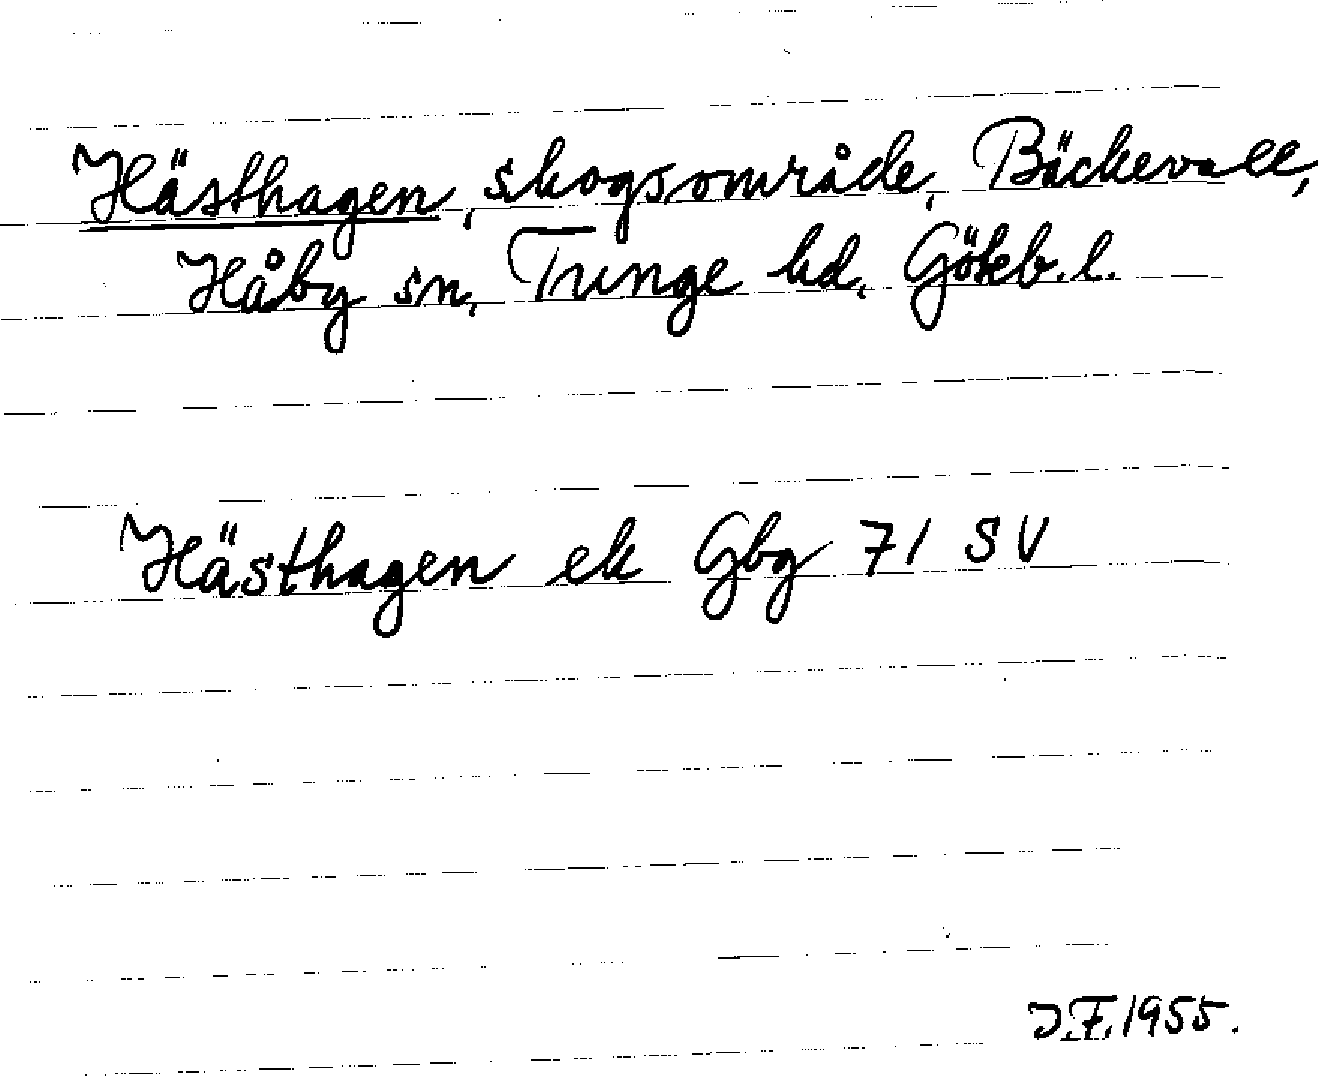 Hästhagen, skogsområde, Bäckevall,
Håby sn, Tunge hd, Göteb. l.
Hästhagen ek Gbg 71 SV
J.F. 1955.